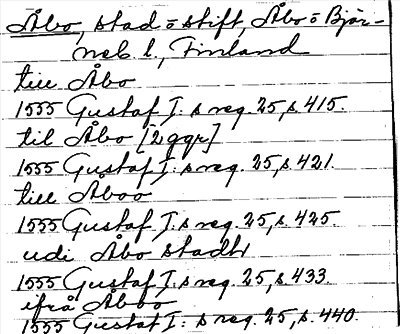 Åbo, stad o stift, Åbo o Björ-
neb. l., Finland
till Åbo
1555 Gustaf I: s reg. 25, s. 415.
til Åbo [2 ggr]
1555 Gustaf I: s reg. 25, s. 421.
till Åboo
1555 Gustaf I: s reg. 25, s. 425.
udi Åbo stadh
1555 Gustaf I: s reg. 25, s. 433.
ifrå Åboo
1555 Gustaf I: s reg. 25, s. 440.